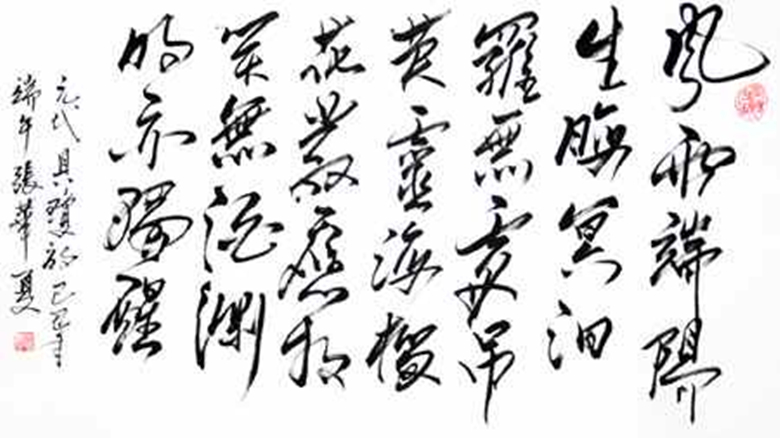 風雨端陽
生晦冥汨
羅無處吊
英靈海榴
花發應相
笑無酒淵
明亦獨醒
元代貝瓊詩己年
端午張華夏